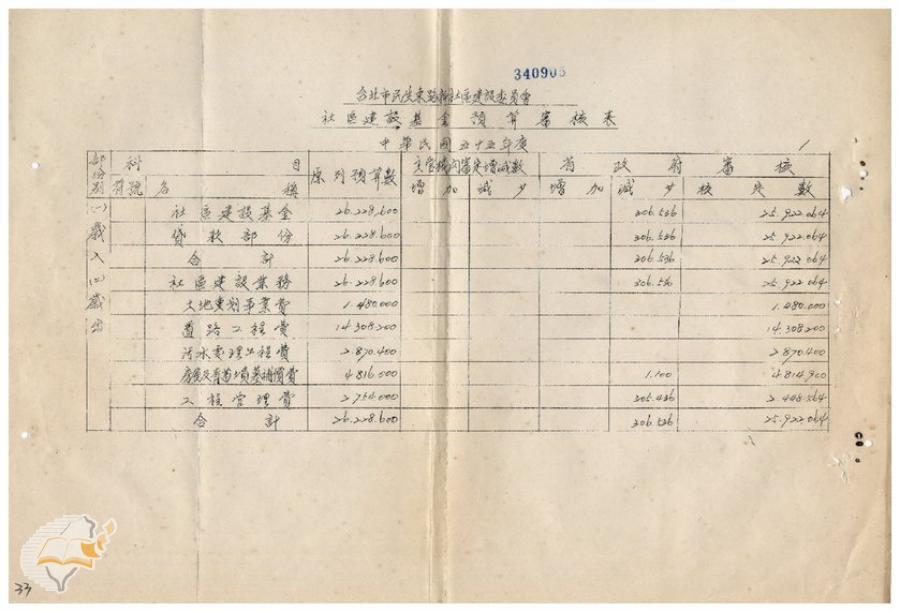 340905
台北市民生東路新社區建設委員會
社區建設基金預算審核表
中華民國五十五年度
部份別 科目 原列預算數 主管機關審定增減數 省政府審核
符號 名稱 增加 減少 增加 減少 核定數
(一)歲入 社區建設基金 26.228.600 306.536 25.922.064
貸款部份 26.228.600 306.536 25.922.064
合計 26.228.600 306.536 25.922.064
(二)歲出 社區建設業務 26.228.600 306.536 25.922.064
土地重劃事業費 1.480.000 1.480.000
道路工程費 14.308.200 14.308.200
污水處理工程費 2.870.400 2.870.400
房屋及青苗墳墓補償費 4.816.000 1.100 4.814.900
工程管理費 2.754.000 305.436 2.448.564
合計 26.228.600 306.536 25.922.064
33